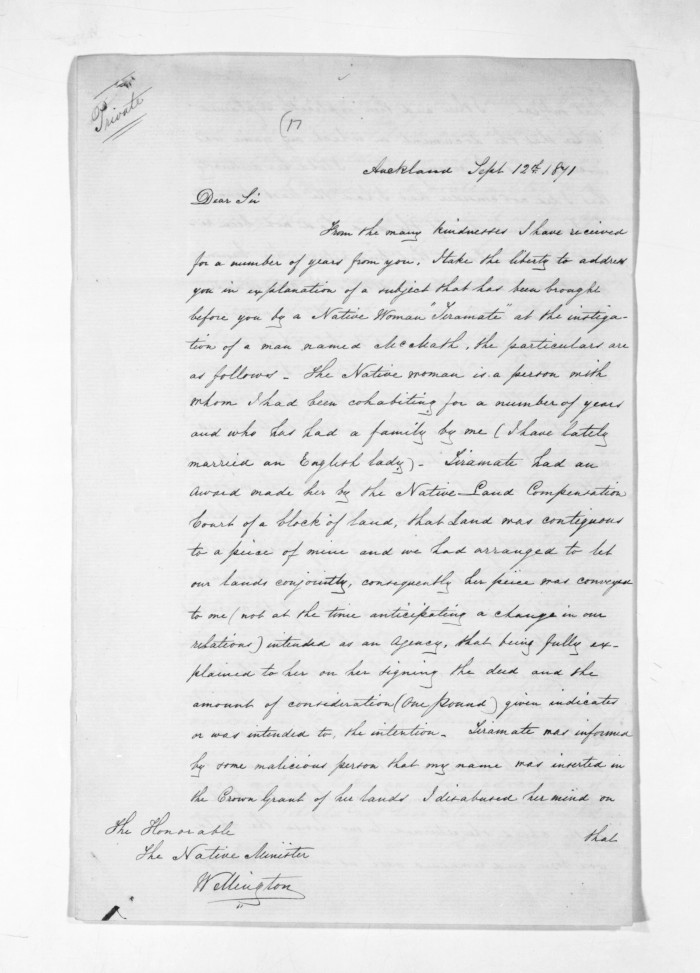 Private
(17
Auckland Sept 12th 1871
Dear Sir
From the many kindnesses I have received
for a number of years from you, I take the liberty to address
you in explanation of a subject that has been brought
before you by a Native Woman "Tiramate" at the instiga-
tion of a man named McMath, the particulars are
as follows - The Native woman is a person with
whom I had been cohabiting for a number of years
and who has had a family by me (I have lately
married an English lady) - Tiramate had an
award made her by the Native Land Compensation
Court of a block of land, that Land was contiguous
to a peice of mine and we had arranged to let
our lands conjointly, consequently her peice was conveyed
to me (not at the time anticipating a change in our
relations) intended as an Agency, that being fully ex-
plained to her on her signing the deed and the
amount of consideration (One pound) given indicates
or was intended to, the intention - Tiramate was informed
by some malicious person that my name was inserted in
the Crown Grant of her lands I disabused her mind on
that
The Honorable
The Native Minister
Wellington